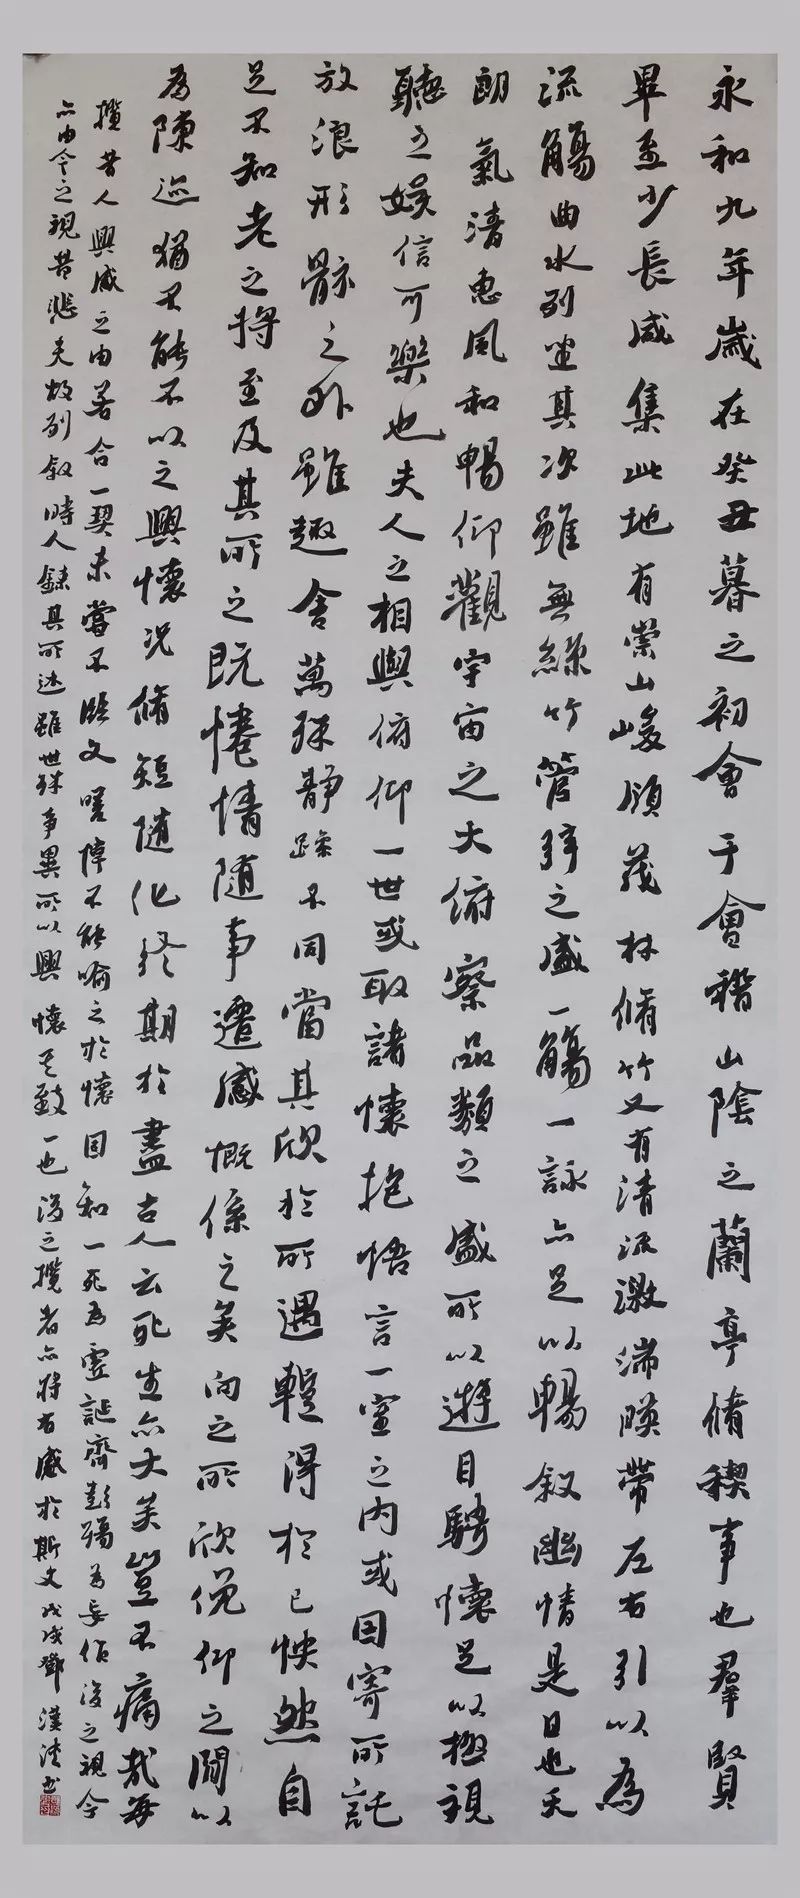 永和九年歲在癸丑暮之初會于會稽山陰之蘭亭脩稧事也羣賢
畢至少長咸集此地有崇山峻領茂林脩竹又有清流激湍暎帶左右引以為
流觴曲水列坐其次雖無絲竹管弦之盛一觴一詠亦足以暢叙幽情是日也天
朗氣清惠風和暢仰觀宇宙之大俯察品類之盛所以遊目騁懷足以極視
聽之娛信可樂也夫人之相與俯仰一世或取諸懷抱悟言一室之內或因寄所託
放浪形骸之外雖趣舍萬殊静躁不同當其欣於所遇蹔得於己怏然自
足不知老之將至及其所之既惓情随事遷感慨係之矣向之所欣俛仰之閒以
為陳迹猶不能不以之興懷況脩短随化終期於盡古人云死生亦大矣豈不痛哉每
攬昔人興感之由若合一契未嘗不臨文嗟悼不能喻之於懷固知一死為虛誕齊彭殤為妄作後之視今
亦由今之視昔悲夫故列叙時人錄其所述雖世殊事異所以興懷其致一也後之攬者亦將有感於斯文戊戌鄧漢书